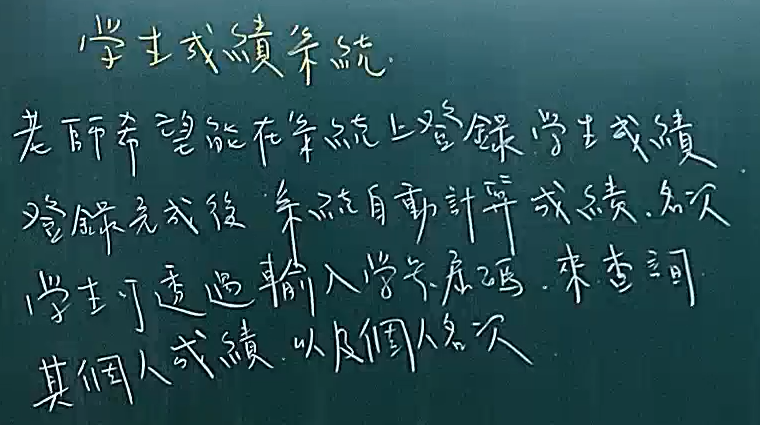 学生成績系統.
老師希望能在系統上登錄学生成績.
登錄完成後 系統自動計算成績.名次
学生可透過輸入学號.密碼.來查詢
其個人成績.以及個人名次